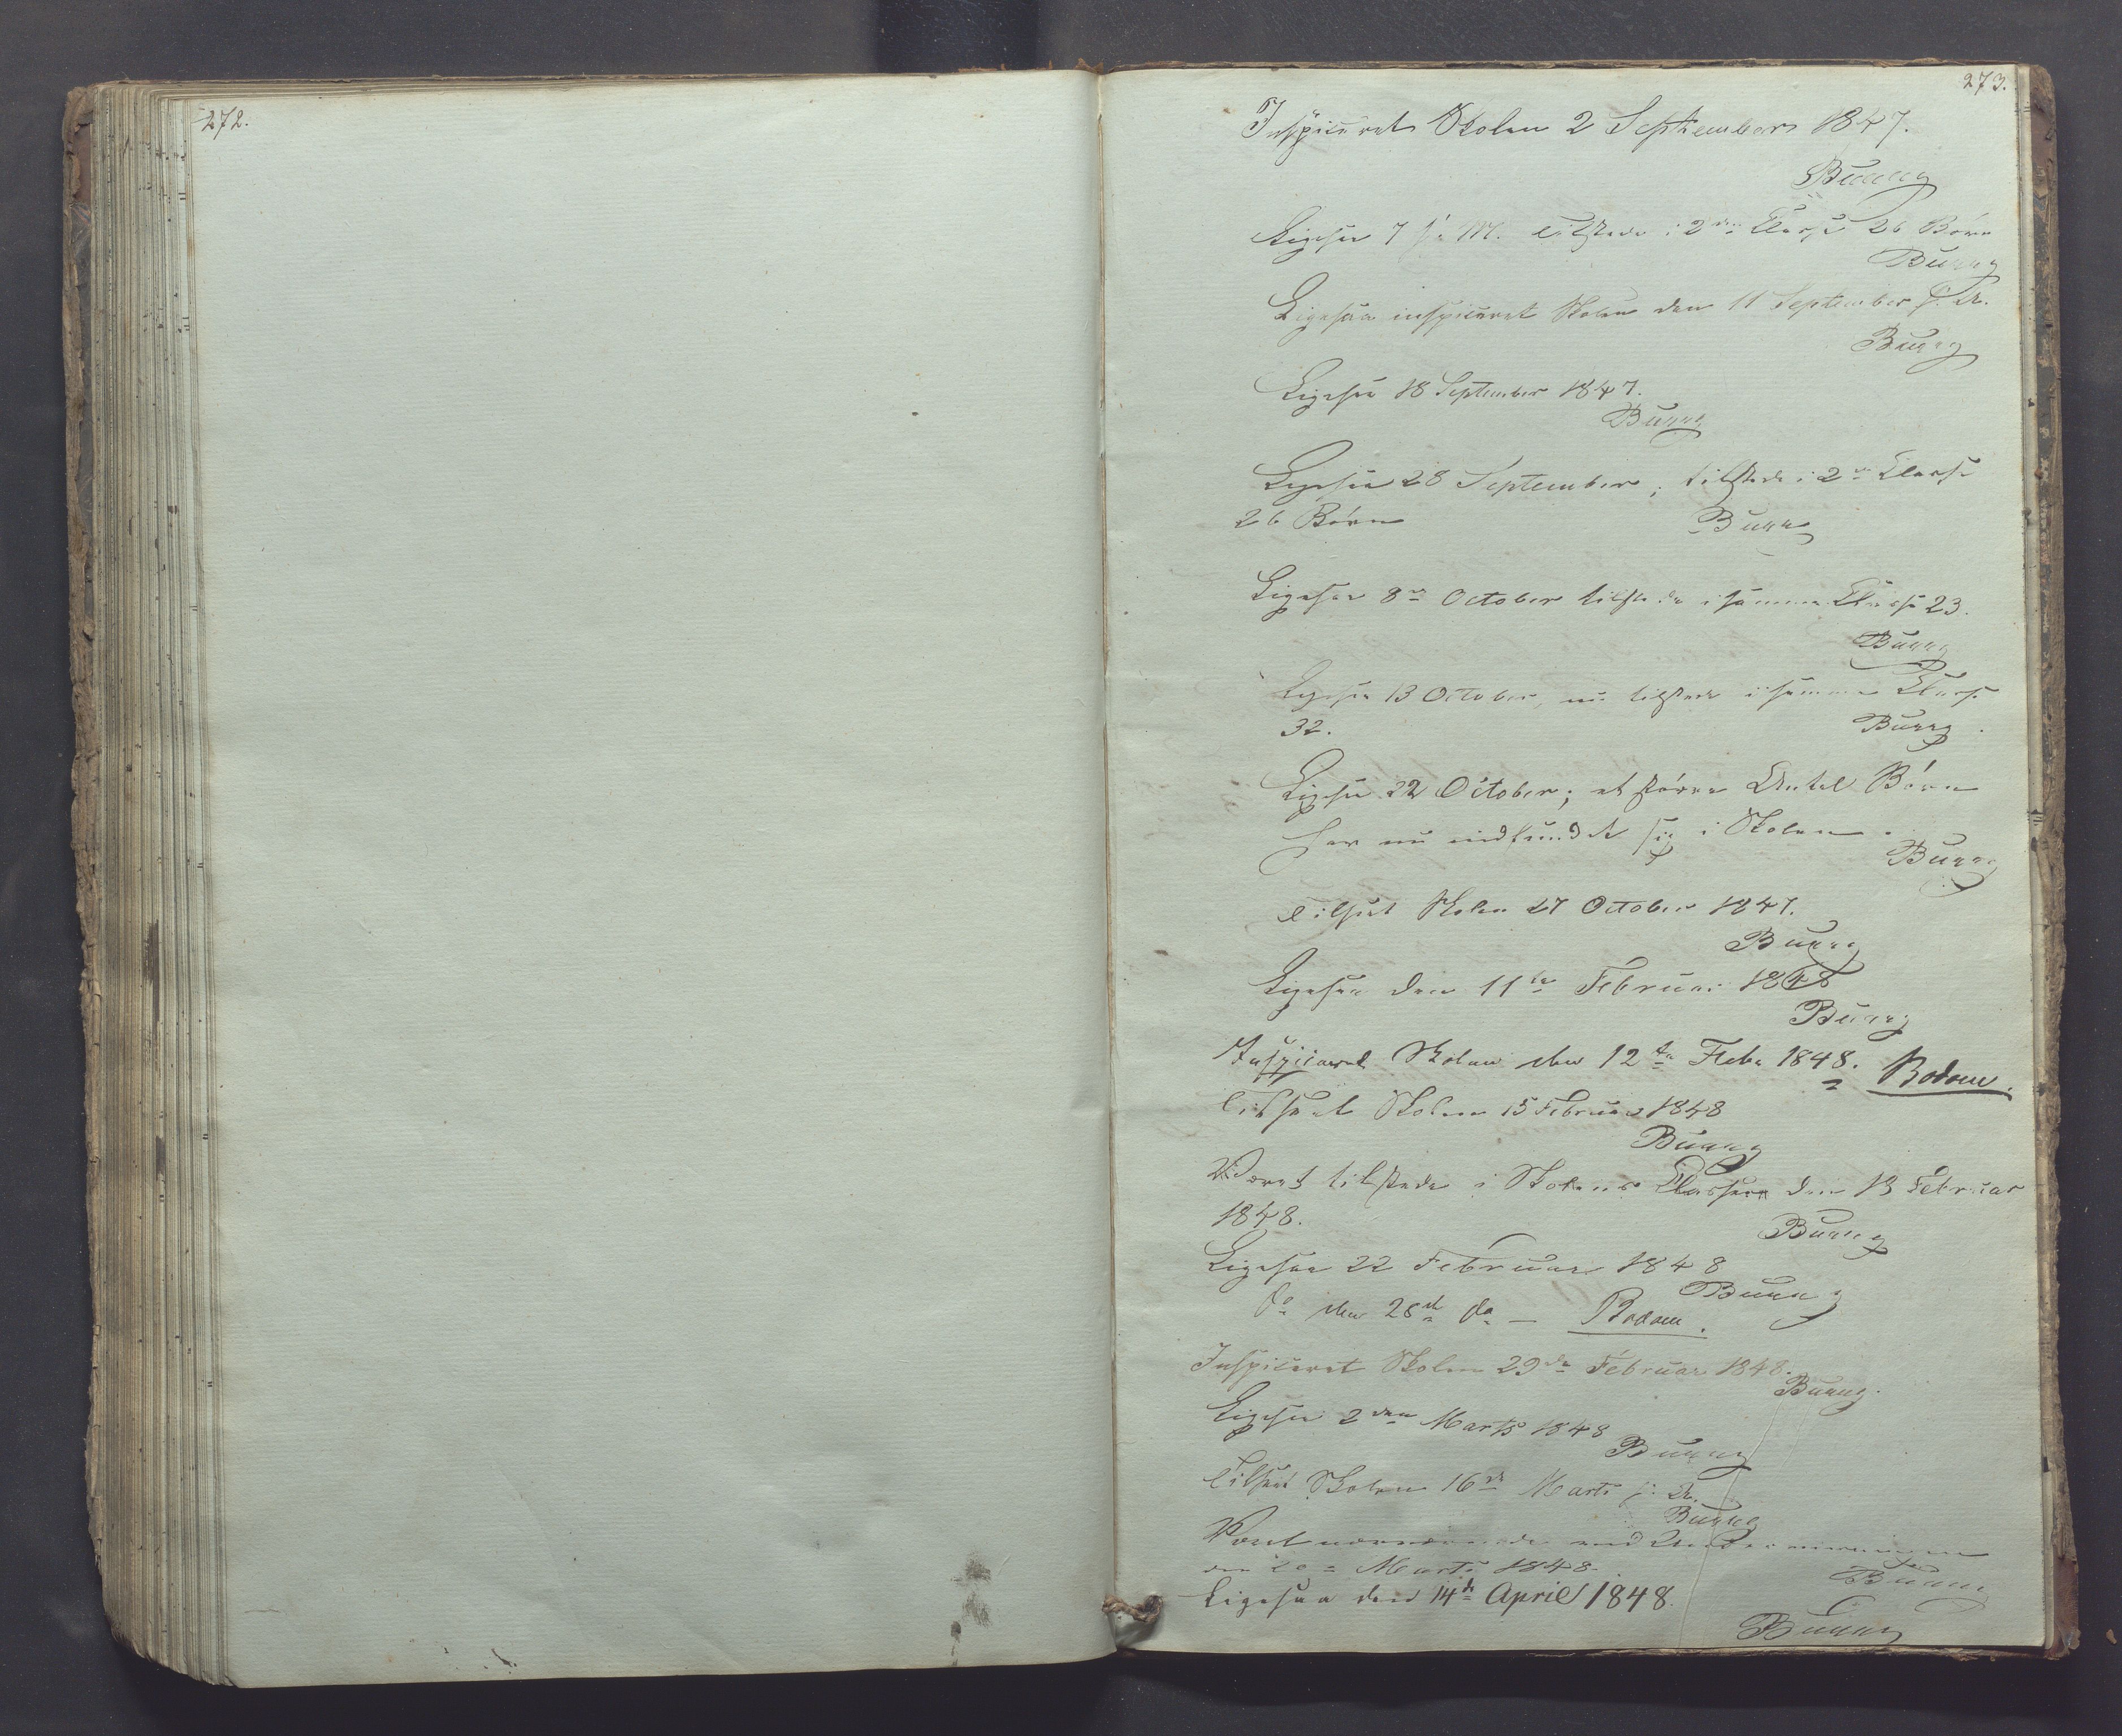 272.
273.
Inspiceret Skolen 2 September 1847.
Bugge
Ligesaa 7 s: M. tilstede i 2den Classe 26 Børn
Bugge
Ligesaa inspiceret Skolen den 11 September s: A.
Bugge
Ligesaa 18 September 1847.
Bugge
Ligesaa 28 September, tilstede i 2den Classe
26 Børn
Bugge
Ligesaa 8de October tilstede i samme Classe 23.
Bugge
Ligesaa 13 October, nu tilstede i samme Classe
32.
Bugge
Ligesaa 22 October; et større Antal Børn
har nu indfundet sig i Skolen.
Bugge
Tilseet Skolen 27 October 1847.
Bugge
Ligesaa den 11te Februar 1848
Bugge
Inspiceret Skolen den 12te Febr 1848. Bodom.
Tilseet Skolen 15 Februar 1848
Bugge
Været tilstede i Skolens Classer den Februar
1848.
Bugge
Ligesaa 22 Februar 1848
Bugge
do den 28de do — Bodom.
Inspiceret Skolen 29de Februar 1848.
Bugge.
Ligesaa 2den Marts 1848
Bugge
Tilseet Skolen 16de Marts s: A.
Bugge
Været nærværende ved Underviisningen
Marts 1848.
Bugge
Ligesaa den 14de April 1848.
Bugge